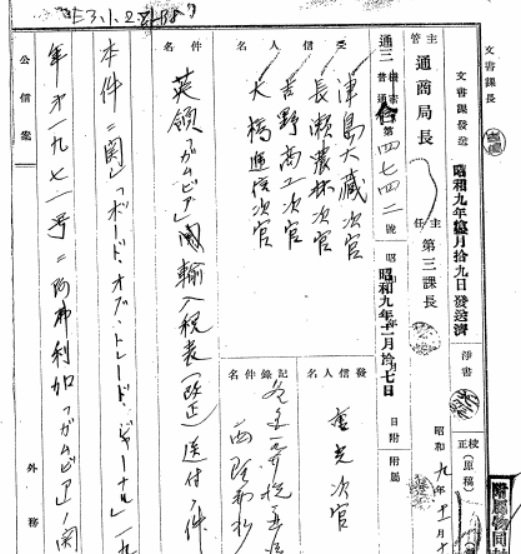 E3.1.2
文書課長
文書課發送 昭和九年 月拾九日發送濟
淨書
校正(原稿)
附屬物同封
主管 通商局長
主任 第三課長
昭和九年十一月十
通三 普通 合 第四七四二號
昭和九年十一月拾七日
日附
附屬
受信人名
津島大藏次官
長瀬農林次官
吉野商工次官
大橋遞信次官
發信人名
重光次官
記錄件名
件名
英領「ガムビア」國輸入税表(改正)送付ノ件
本件ニ関シ「ボード・オブ・トレード・ジャーナル」一九
年第一九七一号ニ阿弗利加「ガムビア」ノ関
公信案
外務